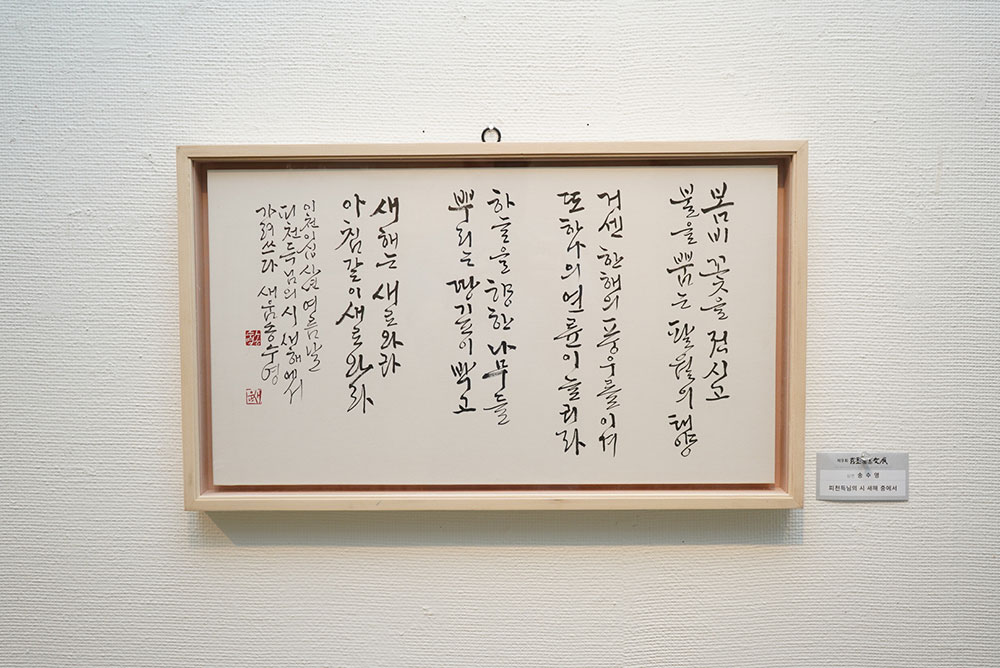 봄비 꽃을 적시고
불을 뿜는 팔월의 태양
거센 한해의 풍우를 이겨
또 하나의 연륜이 늘리라
하늘을 향한 나무들
뿌리는 땅 깊이 박고
새해는 새로와라
아침같이 새로와라
여름날
피천득님의 시 새해에서
가려쓰다 새움 송수영
文展
송 수 영
피천득님의 시 새해 중에서